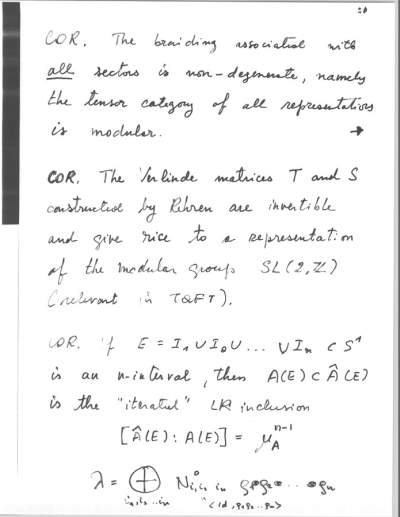 20
COR. The braiding associated with
all sectors is non-degenerate, namely
the tensor category of all representations
is modular. →
COR. The Verlinde matrices T and S
constructed by Rehren are invertible
and give rice to a representation
of the modular group SL(2,Z)
(relevant in TQFT).
COR. If E = I₁ ∪ I₂ ∪ ... ∪ Iₙ ⊂ S¹
is an n-interval, then A(E) ⊂ Â(E)
is the "iterated" LR inclusion
[Â(E) : A(E)] = μ_A^{n-1}
λ = ⊕ N⁰ ...